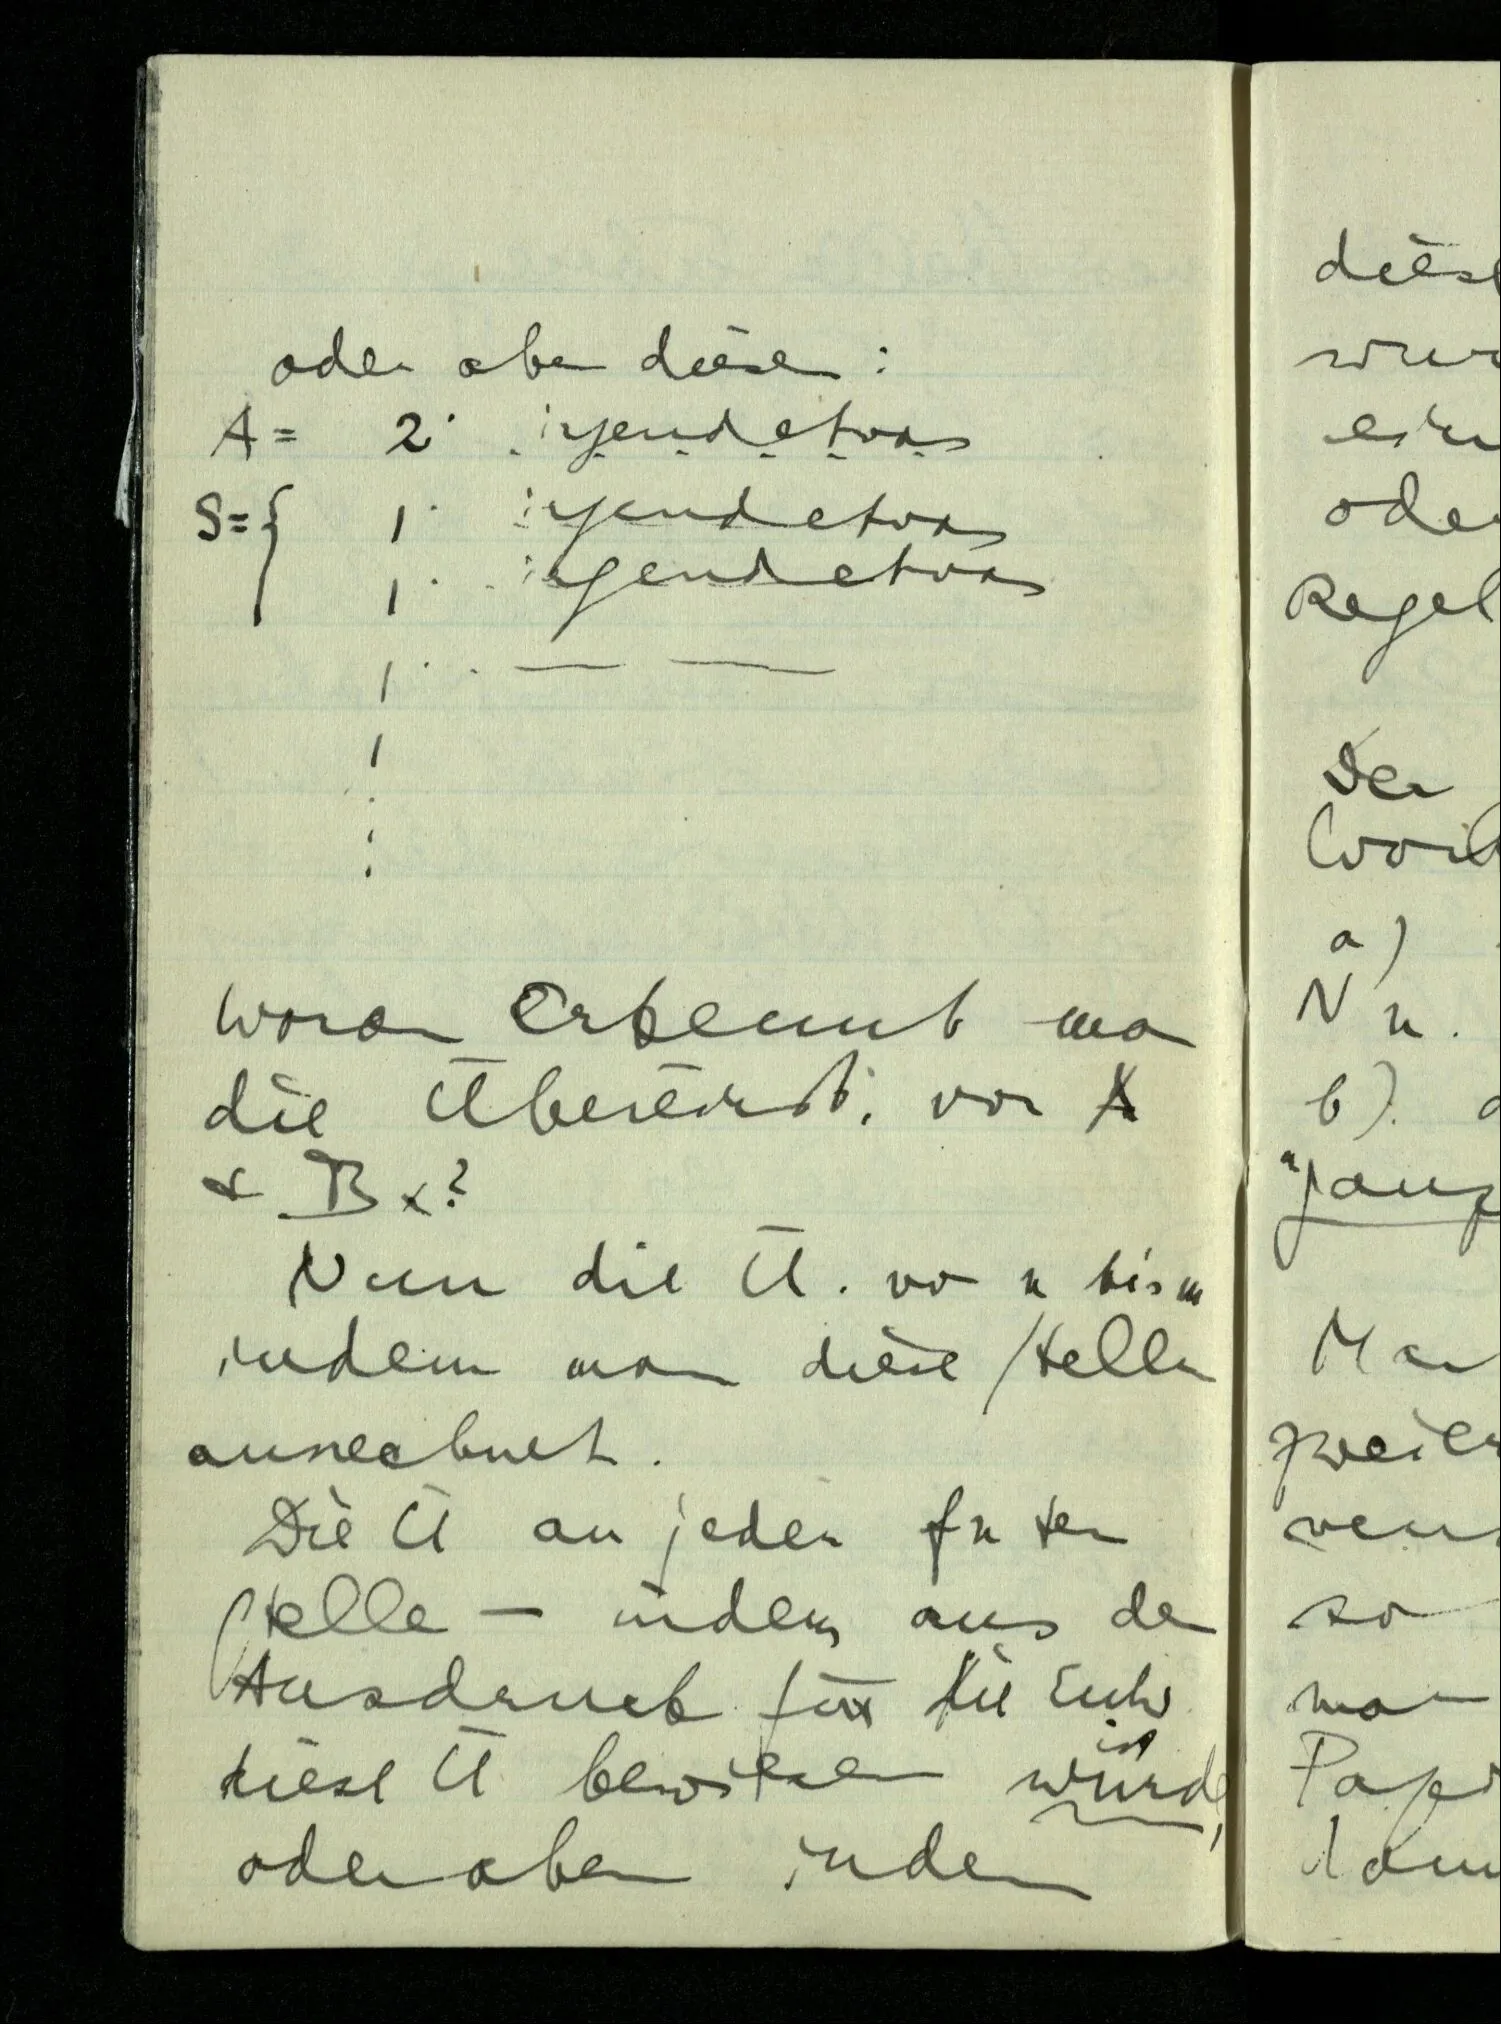 oder aber diese :
A = 2· irgendetwas
S = { 1· irgendetwas
1· irgendetwas
1· . — —
1
⋮
Woran erkennt man
die Übereinst. von A
& B x?
Nun die Ü. von n bis m
indem man diese Stellen
ausrechnet.
Die Ü an jeder n ten
Stelle — indem aus dem
Ausdruck für die Entw
diese Ü bewiesen wurde, ist
oder aber indem
diese
wur
ein
oder
Regel
Der
a)
N n.
b).
"ganz
Man
zweier
so
man
Papi